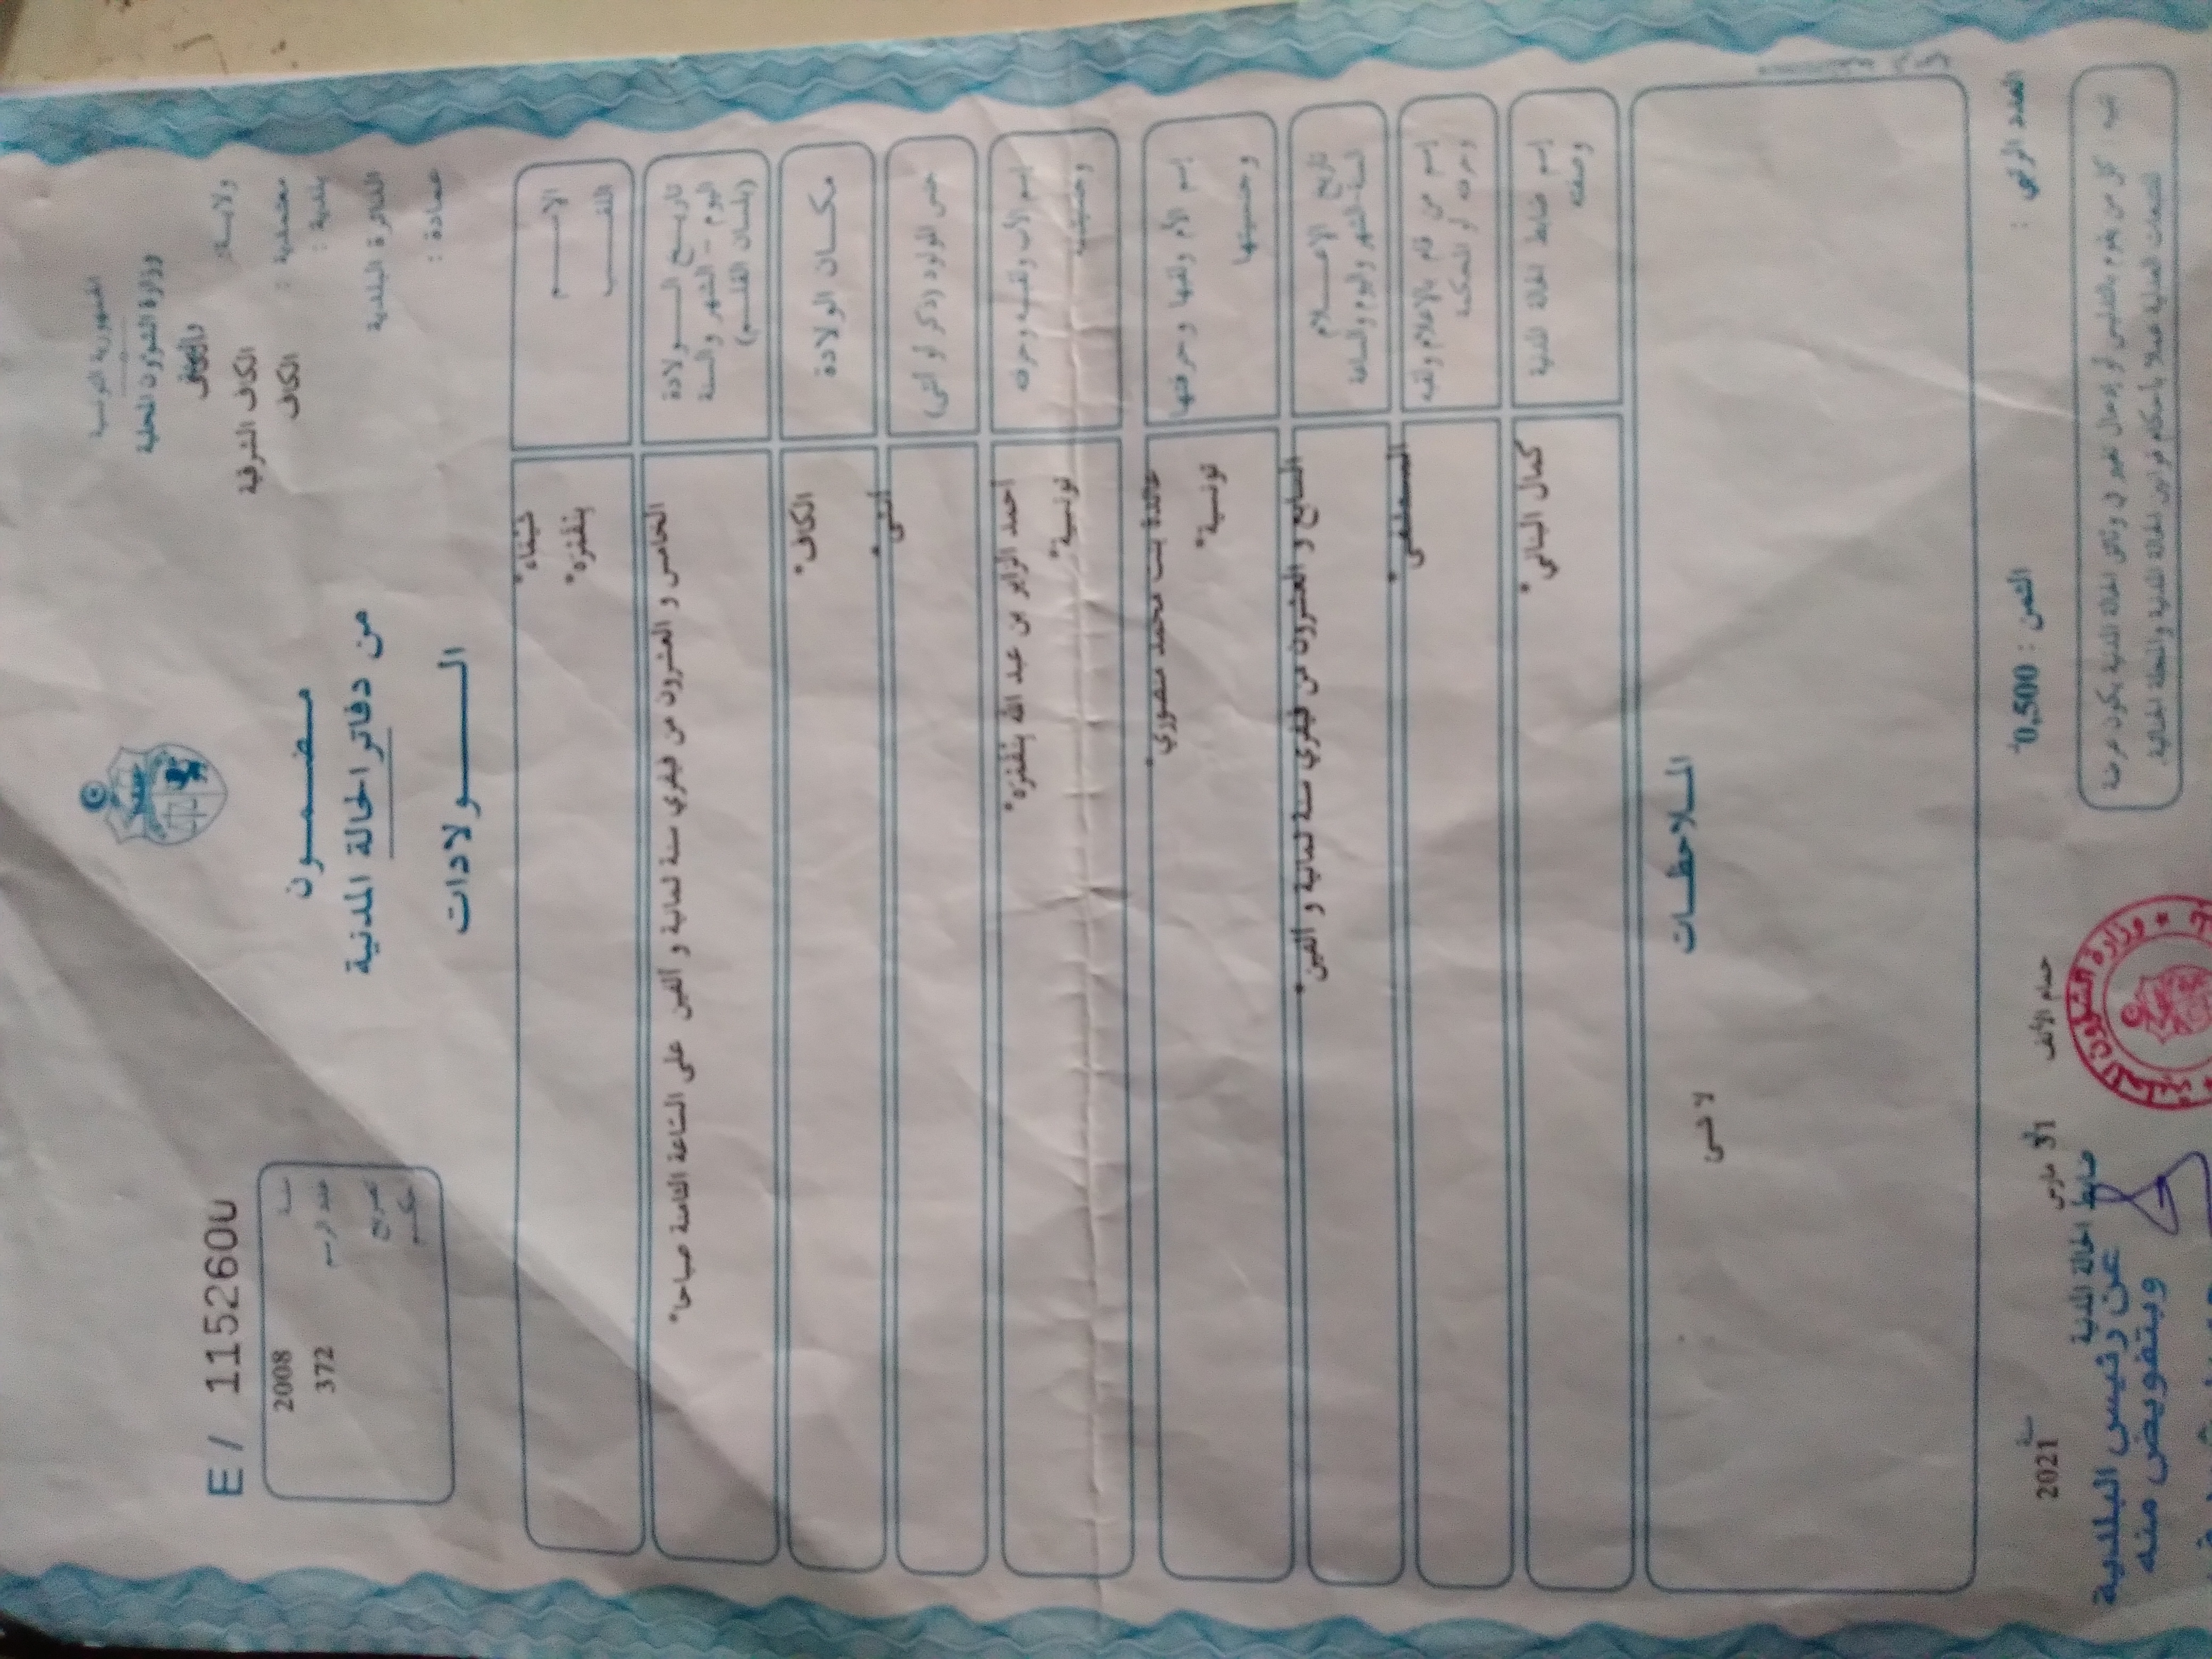 الجمهورية التونسية
وزارة الشؤون المحلية
ولاية الكاف
معتمدية : الكاف الشرقية
بلدية : الكاف
الدائرة البلدية
عمادة :
E / 115260
سنة 2008
عدد الرسم 372
تصريح
حكم
مضمون
من دفاتر الحالة المدنية
الولادات
الاسم
اللقب
شيفاء*
بنفتره*
تاريخ الولادة
اليوم - الشهر والسنة
(بلسان القلم)
الخامس و العشرون من فيفري سنة ثمانية و ألفين على الساعة الثامنة صباحا*
مكان الولادة
الكاف*
جنس المولود (ذكر أو أنثى)
أنثى*
إسم الأب ولقبه وحرفته
وجنسيته
احمد الزاير بن عبد الله بنفتره*
تونسية*
إسم الأم ولقبها وحرفتها
وجنسيتها
خالدة بنت محمد منصوري*
تونسية*
تاريخ الإعلام
السنة الشهر واليوم والساعة
السابع و العشرون من فيفري سنة ثمانية و ألفين*
إسم من قام بالإعلام ولقبه
وحرفته أو المحكمة
المستشفى*
إسم ضابط الحالة المدنية
وصفته
كمال البناني*
الملاحظات
لا شى
العدد الرتبي :
الثمن : 0,500
ختام الألف
مارس
سنة 2021
ضابط الحالة المدنية
عن رئيس البلدية
وبتفويض منه
تنبيه : كل من يقوم بالتدليس أو إدخال تغيير في وثائق الحالة المدنية يكون عرضة
للتتبعات العدلية عملا بأحكام قوانين الحالة المدنية والمجلة الجنائية
وزارة الشؤون المحلية